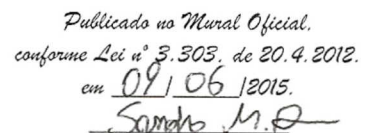 Publicado no Mural Oficial,
conforme Lei nº 3.303, de 20.4.2012.
em 09/06/2015.
Sandro M.